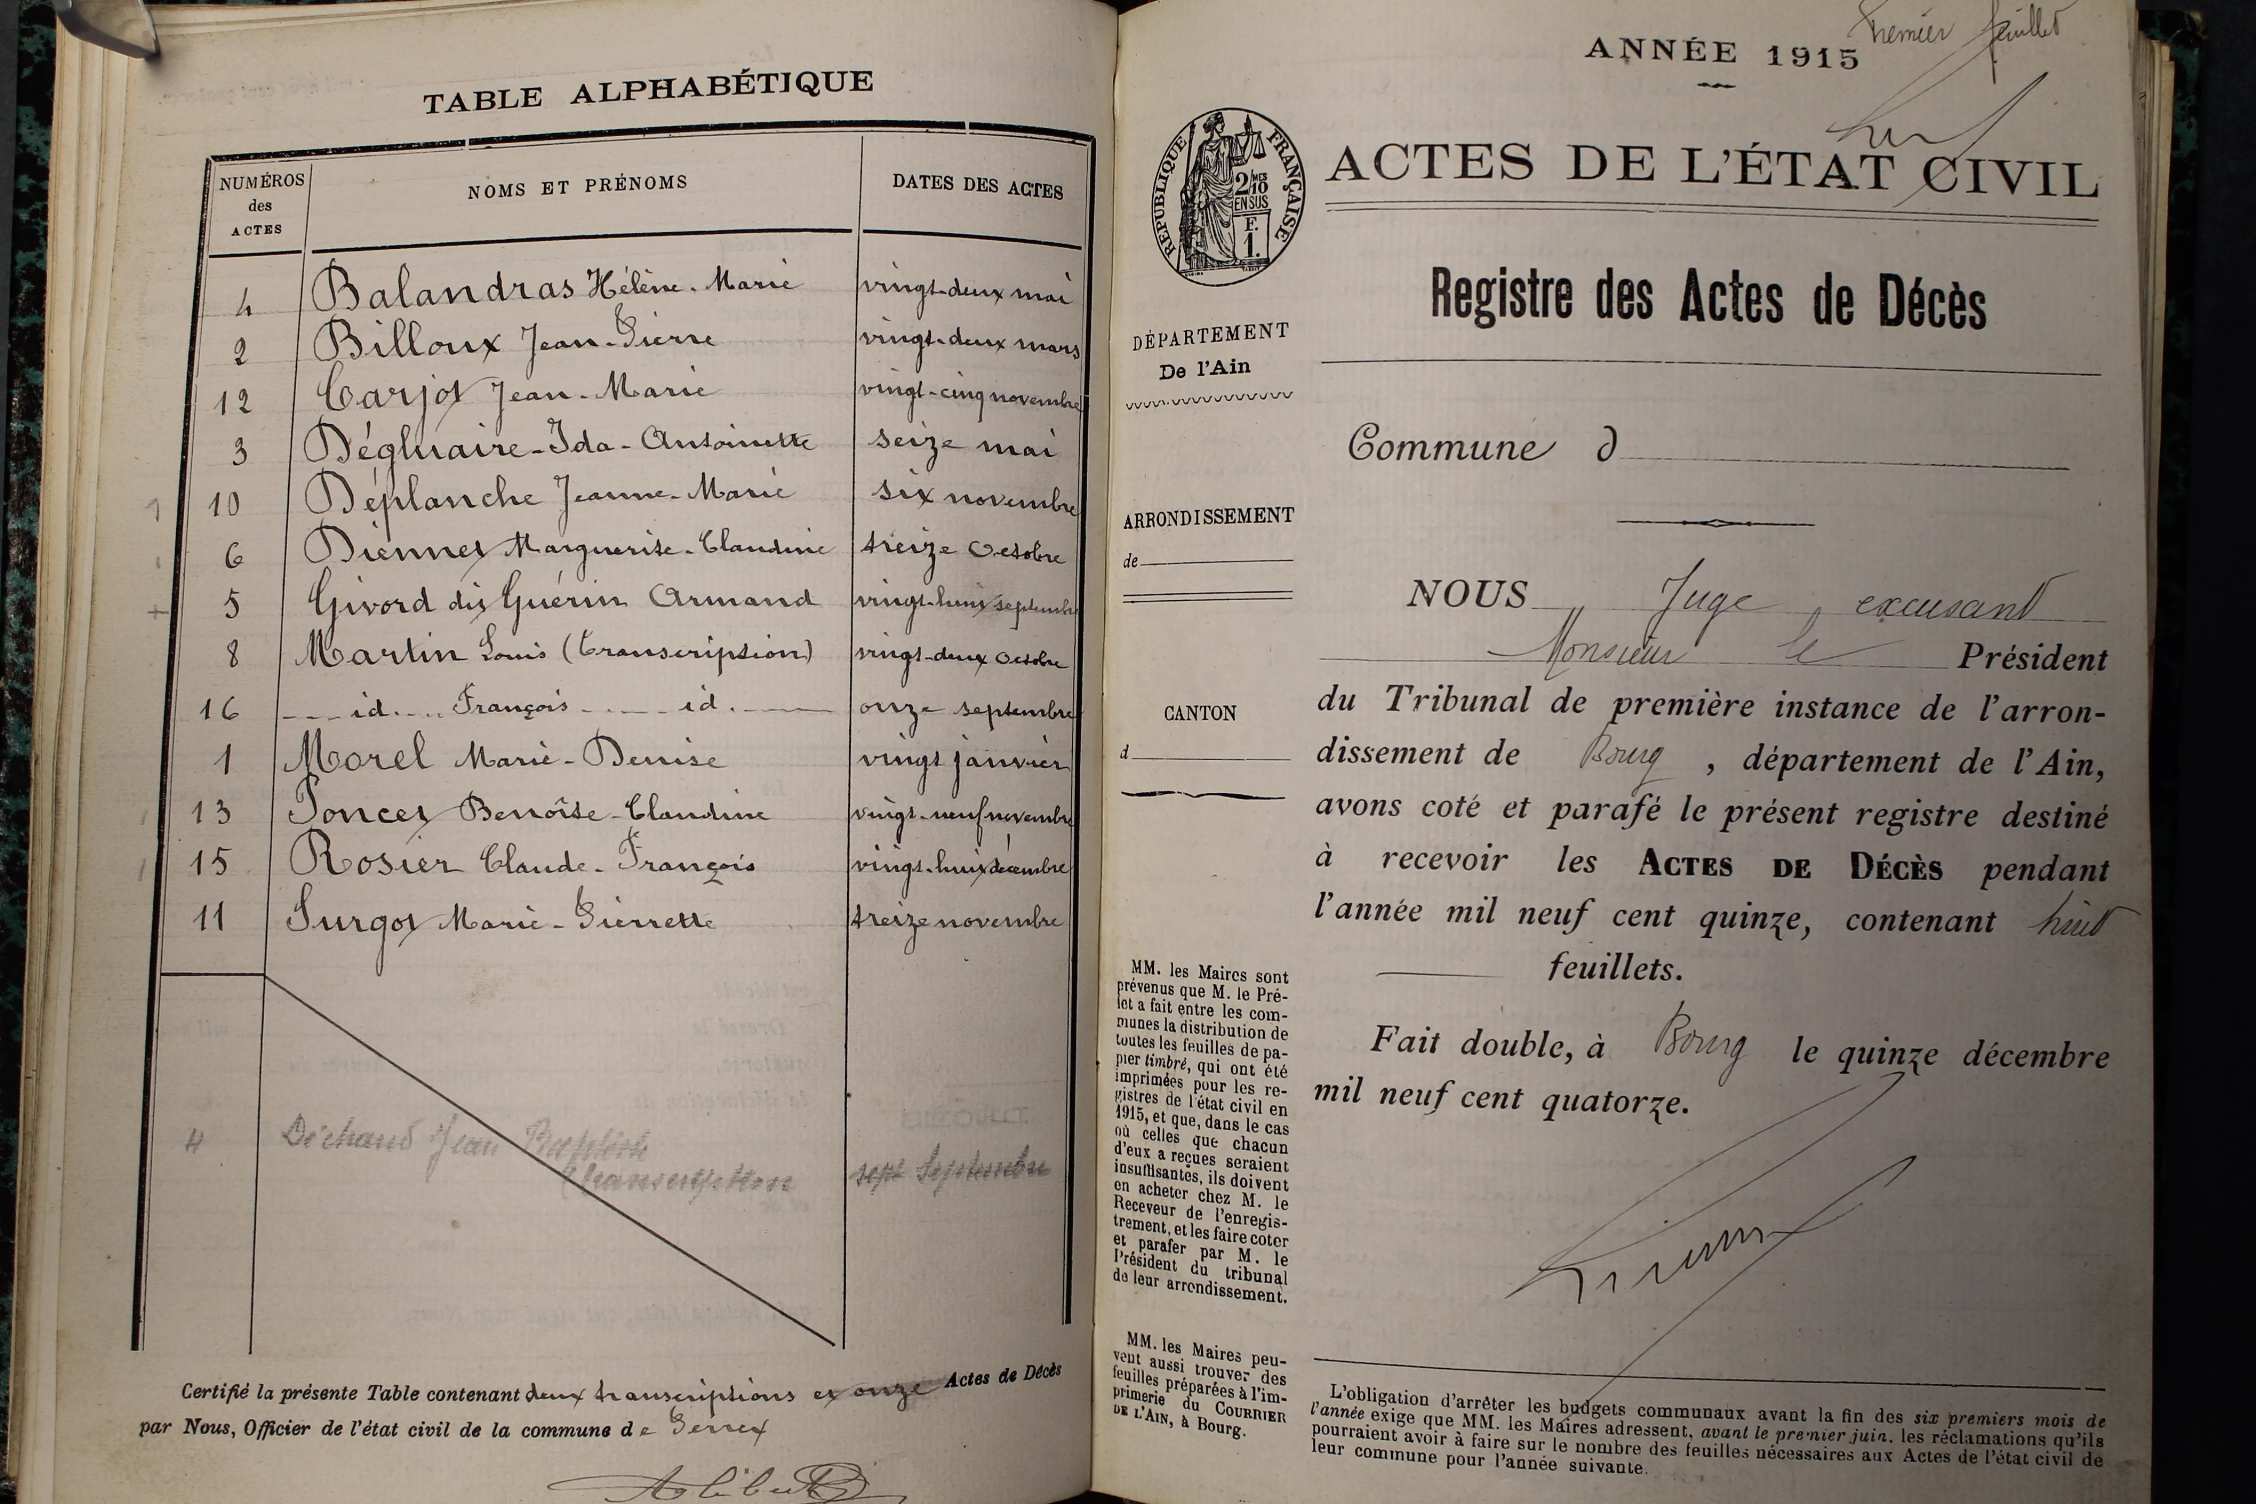 TABLE ALPHABÉTIQUE
NUMÉROS des ACTES
NOMS ET PRÉNOMS
DATES DES ACTES
4 Balandras Hélène-Marie vingt-deux mai
2 Billoux Jean-Pierre vingt-deux mars
12 Carjot Jean-Marie vingt-cinq novembre
3 Dégluaire-Ida-Antoinette seize mai
10 Déplanche Jeanne-Marie six novembre
6 Diennet Marguerite-Claudine treize octobre
5 Givord dit Guérin Armand vingt-huit septembre
8 Martin Louis (transcription) vingt-deux octobre
16 id. François id. onze septembre
1 Morel Marie-Denise vingt janvier
13 Poncet Benoîte-Claudine vingt-neuf novembre
15 Rosier Claude-François vingt-huit décembre
11 Surgot Marie-Pierrette treize novembre
4 Déchaud Jean Baptiste
transcription sept Septembre
Certifié la présente Table contenant deux transcriptions et onze Actes de Décès
par Nous, Officier de l'état civil de la commune de
Premier feuillet
ANNÉE 1915
RÉPUBLIQUE FRANÇAISE
2/10 MES
EN SUS
F.
1.
ACTES DE L'ÉTAT CIVIL
Registre des Actes de Décès
DÉPARTEMENT
De l'Ain
Commune d
ARRONDISSEMENT
de
CANTON
d
NOUS Juge excusant
Monsieur le Président
du Tribunal de première instance de l'arron-
dissement de Bourg, département de l'Ain,
avons coté et parafé le présent registre destiné
à recevoir les ACTES DE DÉCÈS pendant
l'année mil neuf cent quinze, contenant huit
feuillets.
Fait double, à Bourg le quinze décembre
mil neuf cent quatorze.
MM. les Maires sont
prévenus que M. le Pré-
fet a fait entre les com-
munes la distribution de
toutes les feuilles de pa-
pier timbré, qui ont été
imprimées pour les re-
gistres de l'état civil en
1915, et que, dans le cas
où celles que chacun
d'eux a reçues seraient
insuffisantes, ils doivent
en acheter chez M. le
Receveur de l'enregis-
trement, et les faire coter
et parafer par M. le
Président du tribunal
de leur arrondissement.
MM. les Maires peu-
vent aussi trouver des
feuilles préparées à l'im-
primerie du COURRIER
DE L'AIN, à Bourg.
L'obligation d'arrêter les budgets communaux avant la fin des six premiers mois de
l'année exige que MM. les Maires adressent, avant le premier juin, les réclamations qu'ils
pourraient avoir à faire sur le nombre des feuilles nécessaires aux Actes de l'état civil de
leur commune pour l'année suivante.